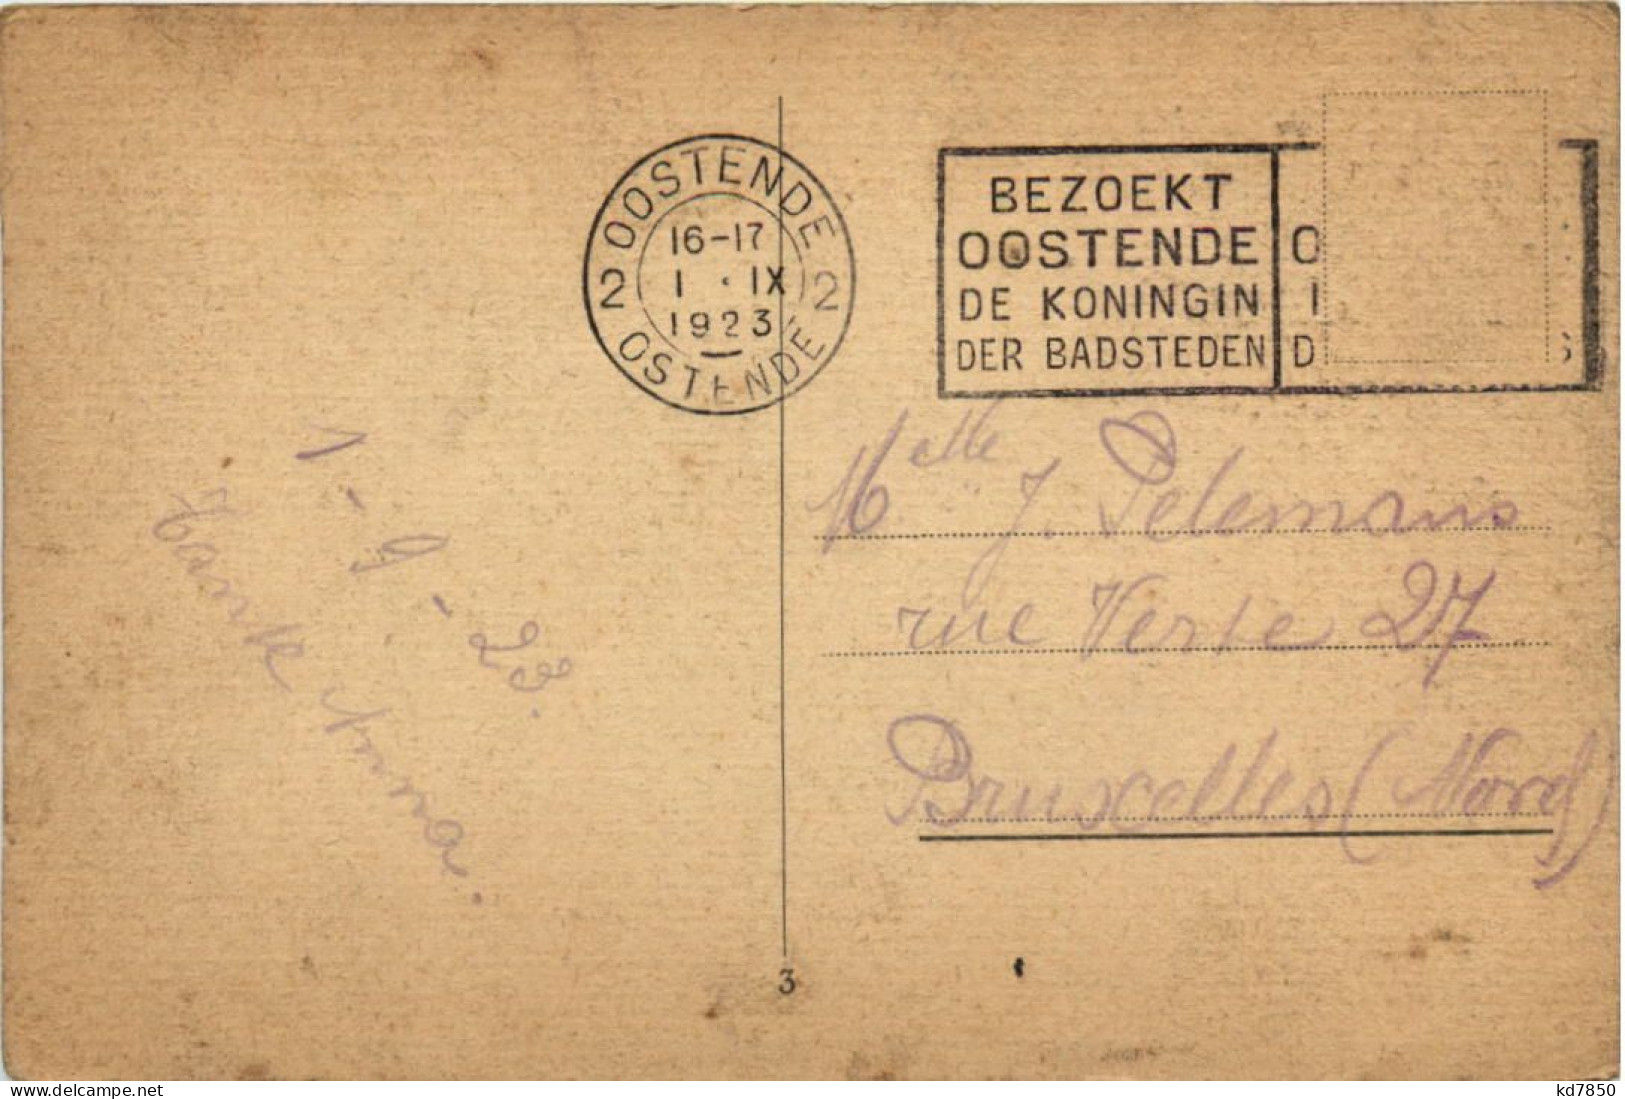 OOSTENDE
2 16-17 2
1 · IX
1923
OSTENDE
BEZOEKT
OOSTENDE
DE KONINGIN
DER BADSTEDEN
O
I
D S
1-9-23.
Tante Anna.
Melle J. Pelemans
rue Verte 27
Bruxelles (Nord)
3
www.delcampe.net
kd7850